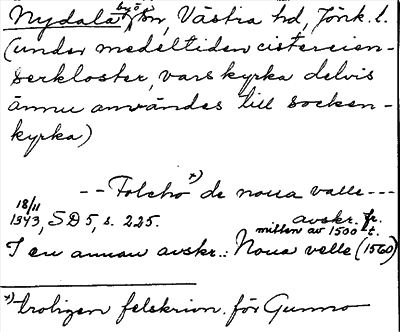 Nydala by o. sn, Västra hd, Jönk. l.
(under medeltiden cistercien-
serkloster, vars kyrka delvis
ännu användes till socken-
kyrka)
-- Folcho x) de noua valle ---
18/11 1343, SD 5, s. 225. avskr. fr. mitten av 1500 t.
I en annan avskr.: Noua velle (1560)
x) troligen felskrivn. för Gunno